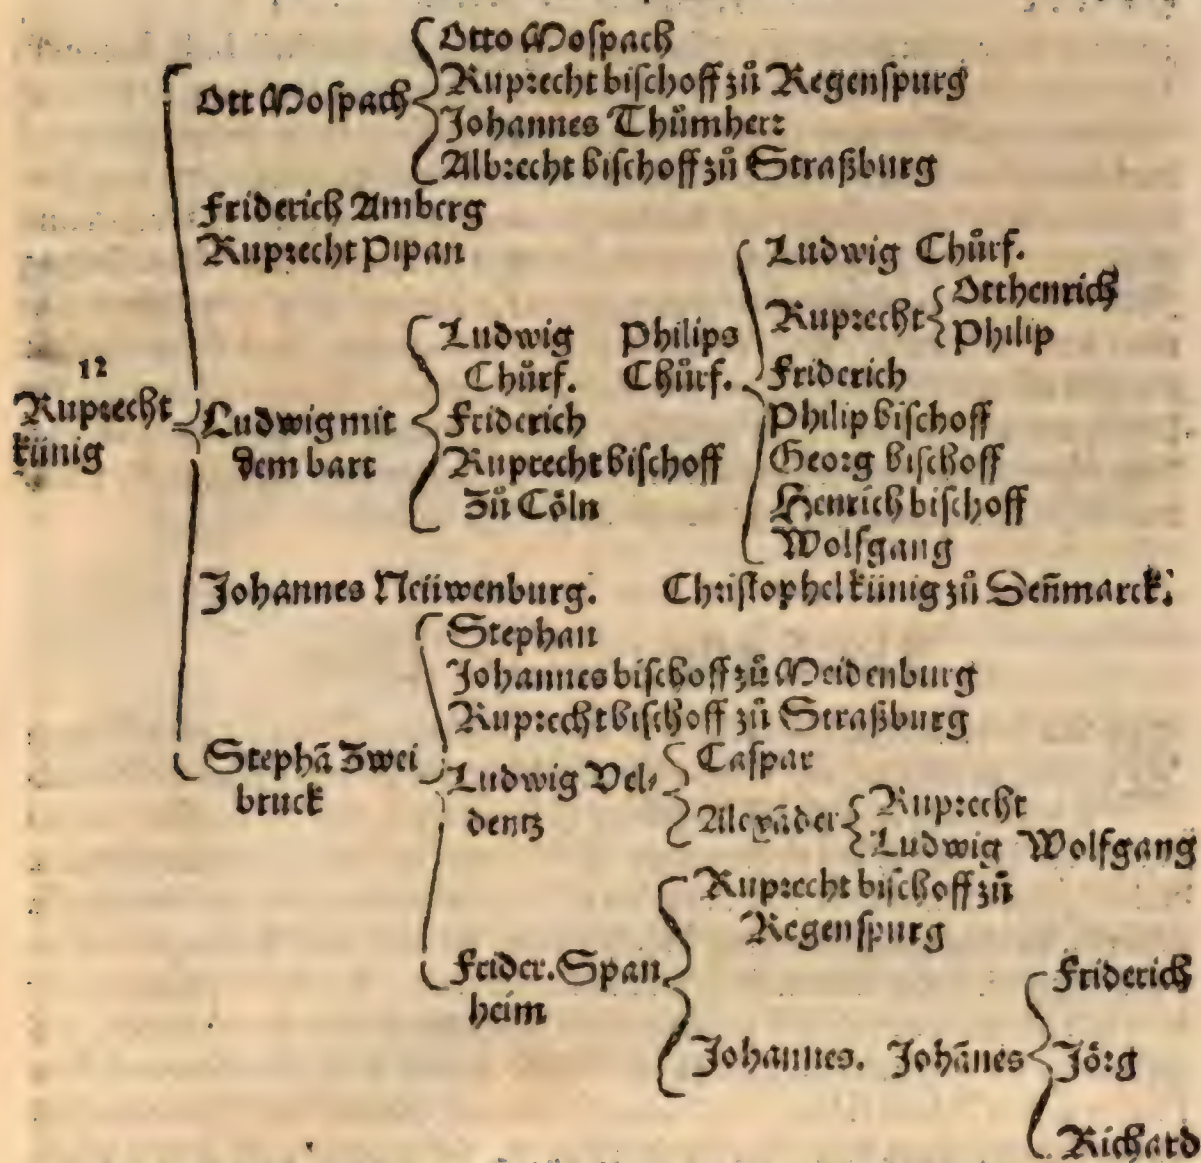 Otto Moſpach
Ott Moſpach
Ruprecht biſchoff zů Regenſpurg
Johannes Thůmherr
Albrecht biſchoff zů Straßburg
Friderich Amberg
Ruprecht Pipan
12
Ruprecht
künig
Ludwig mit
dem bart
Ludwig
Chůrf.
Friderich
Ruprecht biſchoff
zů Cöln
Philips
Chůrf.
Ludwig Chůrf.
Ruprecht
Otthenrich
Philip
Friderich
Philip biſchoff
Georg biſchoff
Henrich biſchoff
Wolfgang
Johannes Neüwenburg. Chriſtophel künig zů Deñmarck.
Stephã Zwei
bruck
Stephan
Johannes biſchoff zů Meidenburg
Ruprecht biſchoff zů Straßburg
Ludwig Vel⸗
dentz
Caſpar
Alexãder
Ruprecht
Ludwig Wolfgang
Frider. Span
heim
Ruprecht biſchoff zů
Regenſpurg
Johannes. Johãnes
Friderich
Jörg
Richard